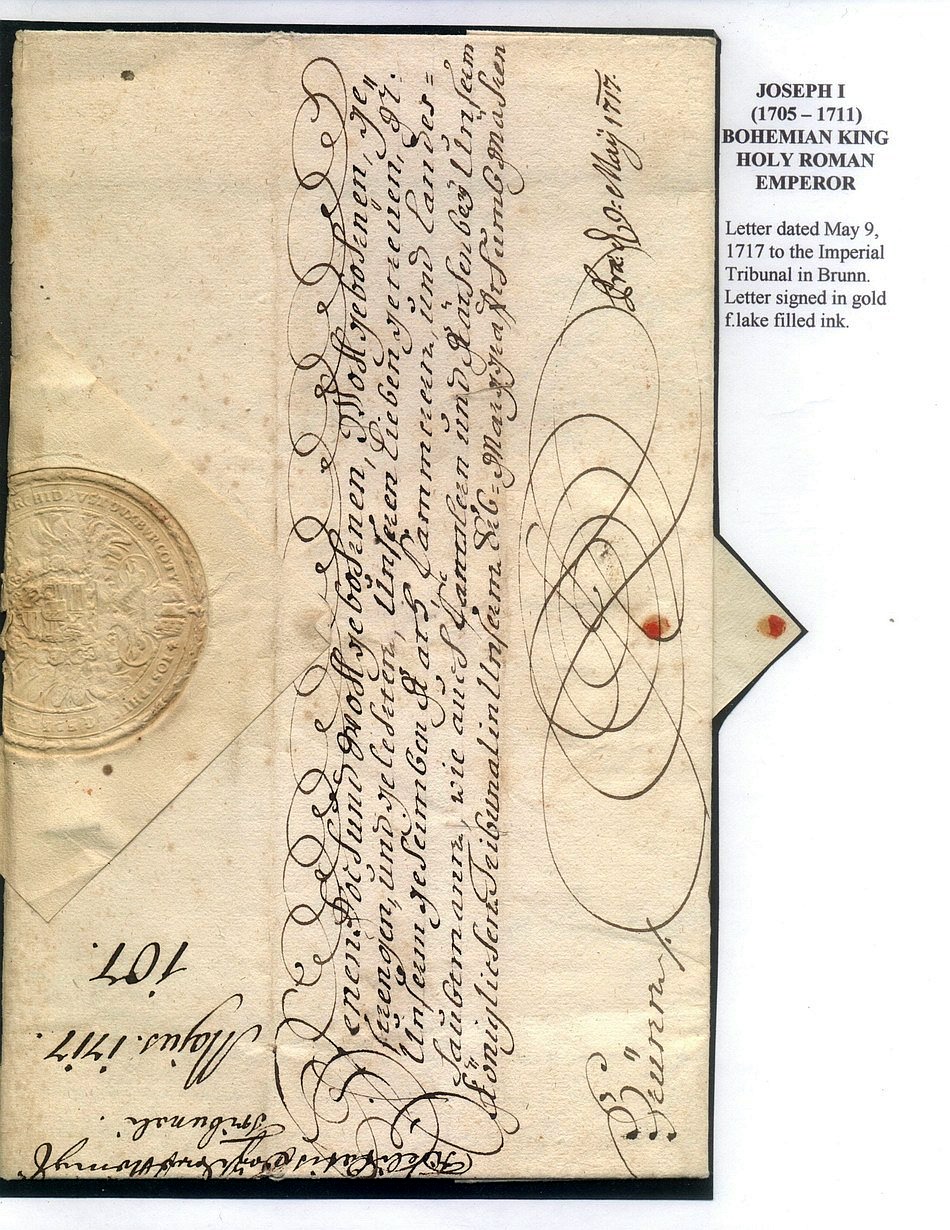 JOSEPH I
(1705 – 1711)
BOHEMIAN KING
HOLY ROMAN
EMPEROR
Letter dated May 9,
1717 to the Imperial
Tribunal in Brunn.
Letter signed in gold
f.lake filled ink.
Denen Hoch und Wohlgebohrnen, Wohlgebohrnen, Ge„
strengen, und gelehrten, Unseren Lieben getreuen, N: N:
Unserm gehaimben Rath, Cammerern, und Landes=
haubtmann, wie auch Cantzlern und Räthen bey Unserm
Königlichen Tribunal in Unserm Erb=Marggrafthumb Mähren
9. Maÿ 1717.
Brünn
107.
Majus. 1717.
Tribunali.